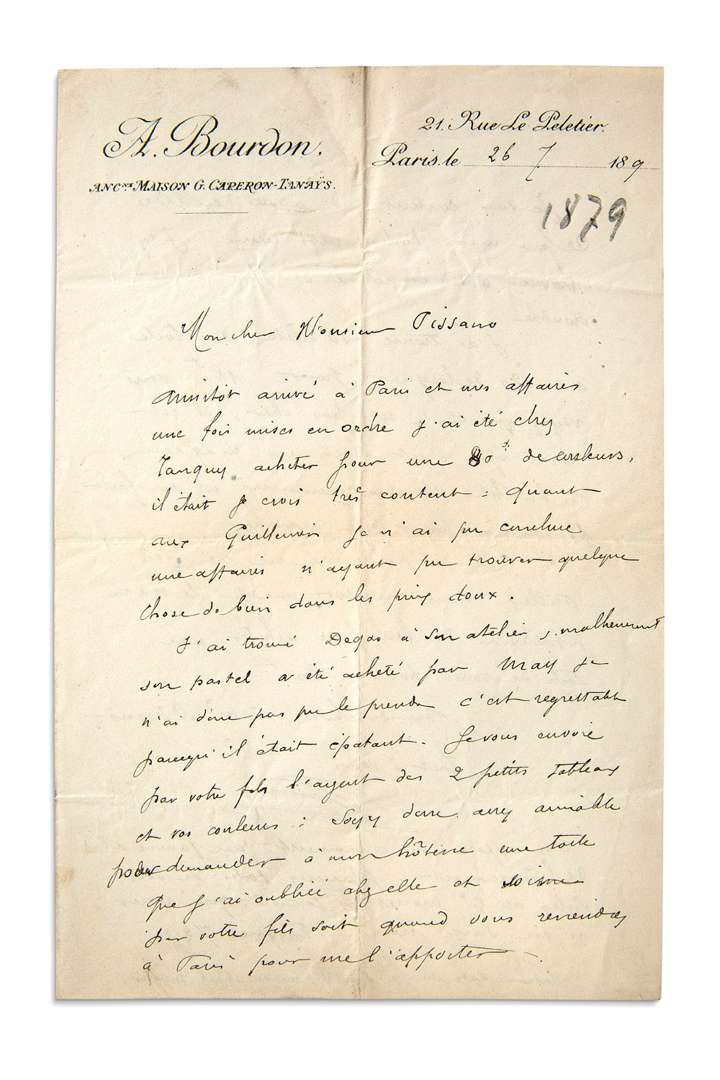 A. Bourdon.
ANCne MAISON G. CAPERON-TANAŸS.
21. Rue Le Peletier.
Paris, le 26 7 189
1879
Mon cher Monsieur Pissarro
Aussitôt arrivé à Paris et mes affaires
une fois mises en ordre j'ai été chez
Tanguy acheter pour une 80f de couleurs,
il était je crois très content : Quant
aux Guillaumin je n'ai pu conclure
une affaires n'ayant pu trouver quelque
chose de bien dans les prix doux.
J'ai trouvé Degas à son atelier, malheureusement
son pastel a été acheté par May je
n'ai donc pas pu le prendre c'est regrettable
parcequ'il était épatant. Je vous envoie
par votre fils l'argent des 2 petits tableaux
et vos couleurs : Soyez donc assez aimable
pour demander à mon hôtesse une toile
que j'ai oubliée chez elle et soit
par votre fils soit quand vous reviendrez
à Paris pour me l'apporter.